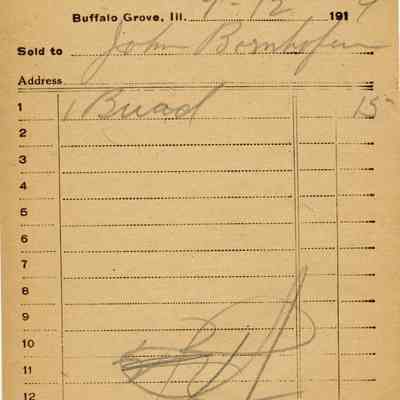 Buffalo Grove, Ill. 9-12 1919
Sold to John Bornhofen
Address
1 1 Bread 15
2
3
4
5
6
7
8
9
10
11
12